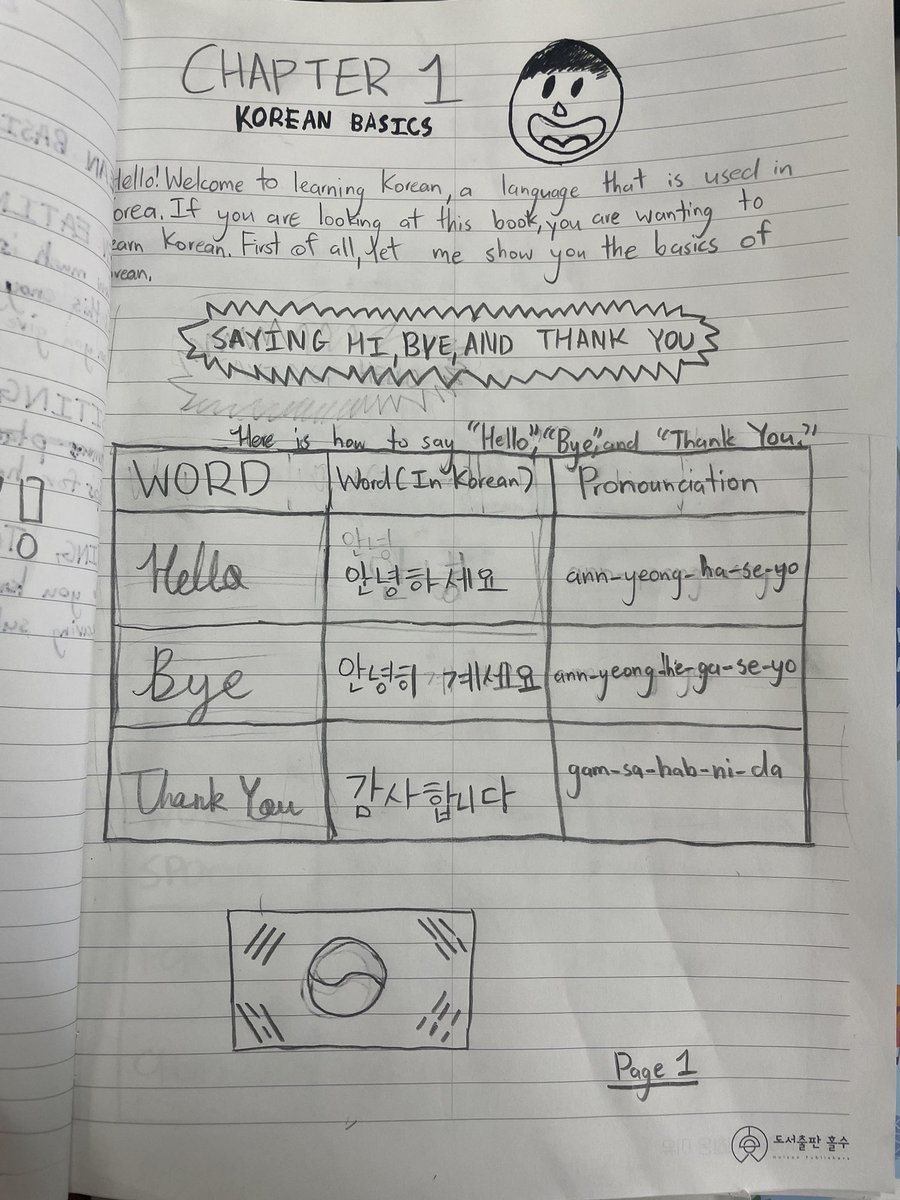 CHAPTER 1
KOREAN BASICS
Hello! Welcome to learning Korean, a language that is used in
orea. If you are looking at this book, you are wanting to
earn Korean. First of all, let me show you the basics of
rean.
SAYING HI, BYE, AND THANK YOU
Here is how to say "Hello", "Bye", and "Thank You."
WORD Word (In Korean) Pronounciation
안녕
Hello 안녕하세요 ann-yeong-ha-se-yo
Bye 안녕히 계세요 ann-yeong-he-gu-se-yo
Thank You 감사합니다 gam-sa-hab-ni-da
Page 1
도서출판 홀수
Holsoo Publishers